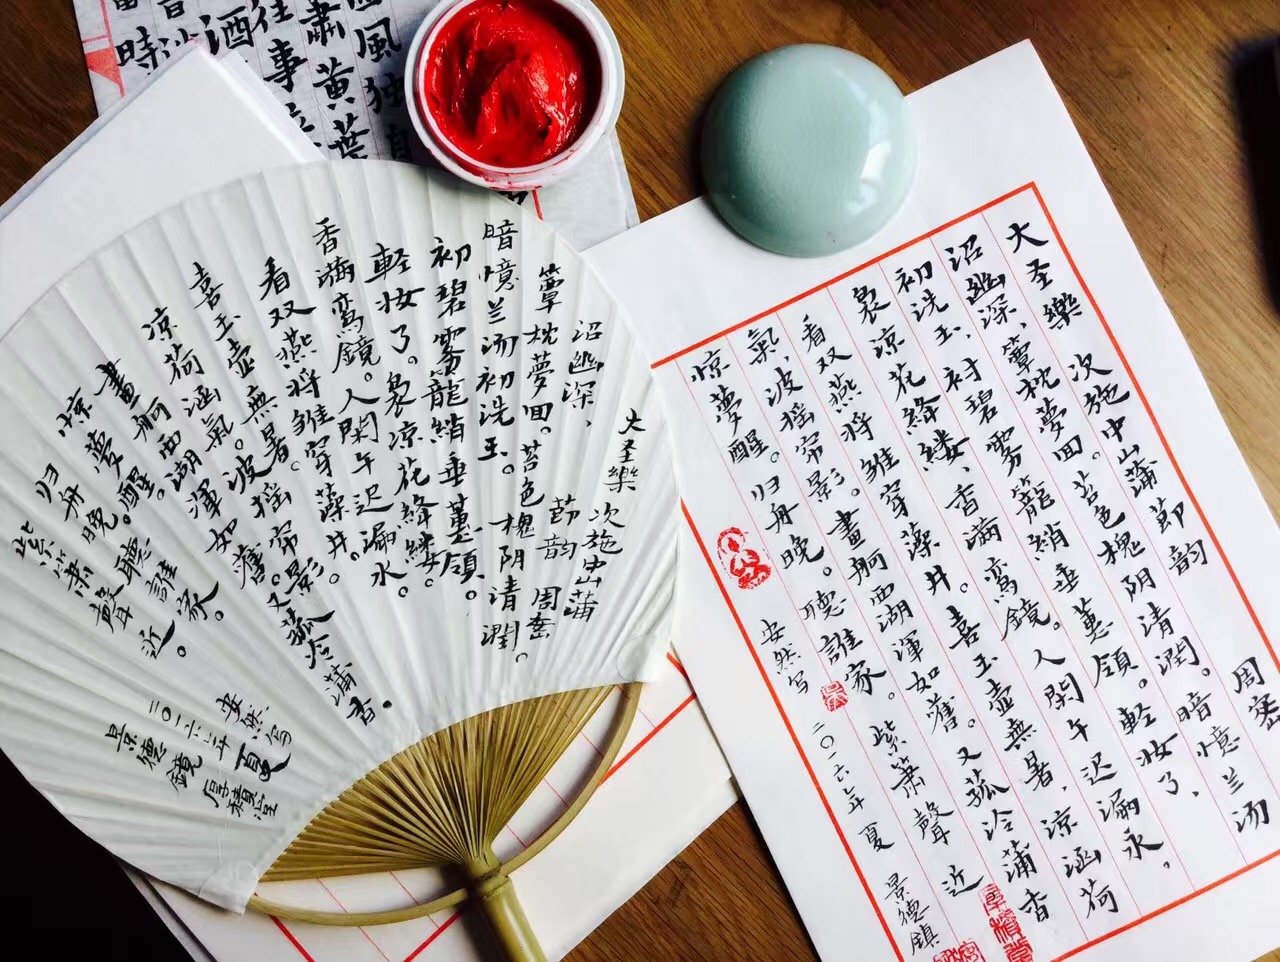 大圣樂 次施中山蒲節韵 周密
沼幽深、簟枕夢回。苔色槐阴清潤。暗憶兰汤
初洗玉、衬碧雾籠綃垂蕙領。軽妆了、
裊凉花絳縷、香满鸾鏡。人閑午迟漏永,
看双燕将雏穿藻井。喜玉壶無暑,凉涵荷
氣、波摇帘影。畫舸西湖渾如舊。又菰冷蒲香
惊夢醒。归舟晚。聽誰家。紫箫聲近
安然写 二〇二六年夏 景德鎮
厚積堂
大圣樂 次施中山蒲
節韵 周密
沼幽深、
簟枕夢回。苔色槐阴清潤。
暗憶兰汤初洗玉。
初碧雾籠綃垂蕙領。
軽妆了。裊凉花絳縷。
香满鸾鏡。人閑午迟漏永。
看双燕将雏穿藻井。
喜玉壶無暑。
凉荷涵氣。波摇帘影。
畫舸西湖渾如舊。又菰冷蒲香。
惊夢醒。
归舟晚。聽誰家。
紫箫聲近。
安然写
二〇二六年夏
景德鎮 厚積堂
風独自
肅黄葉
往事
酒
時